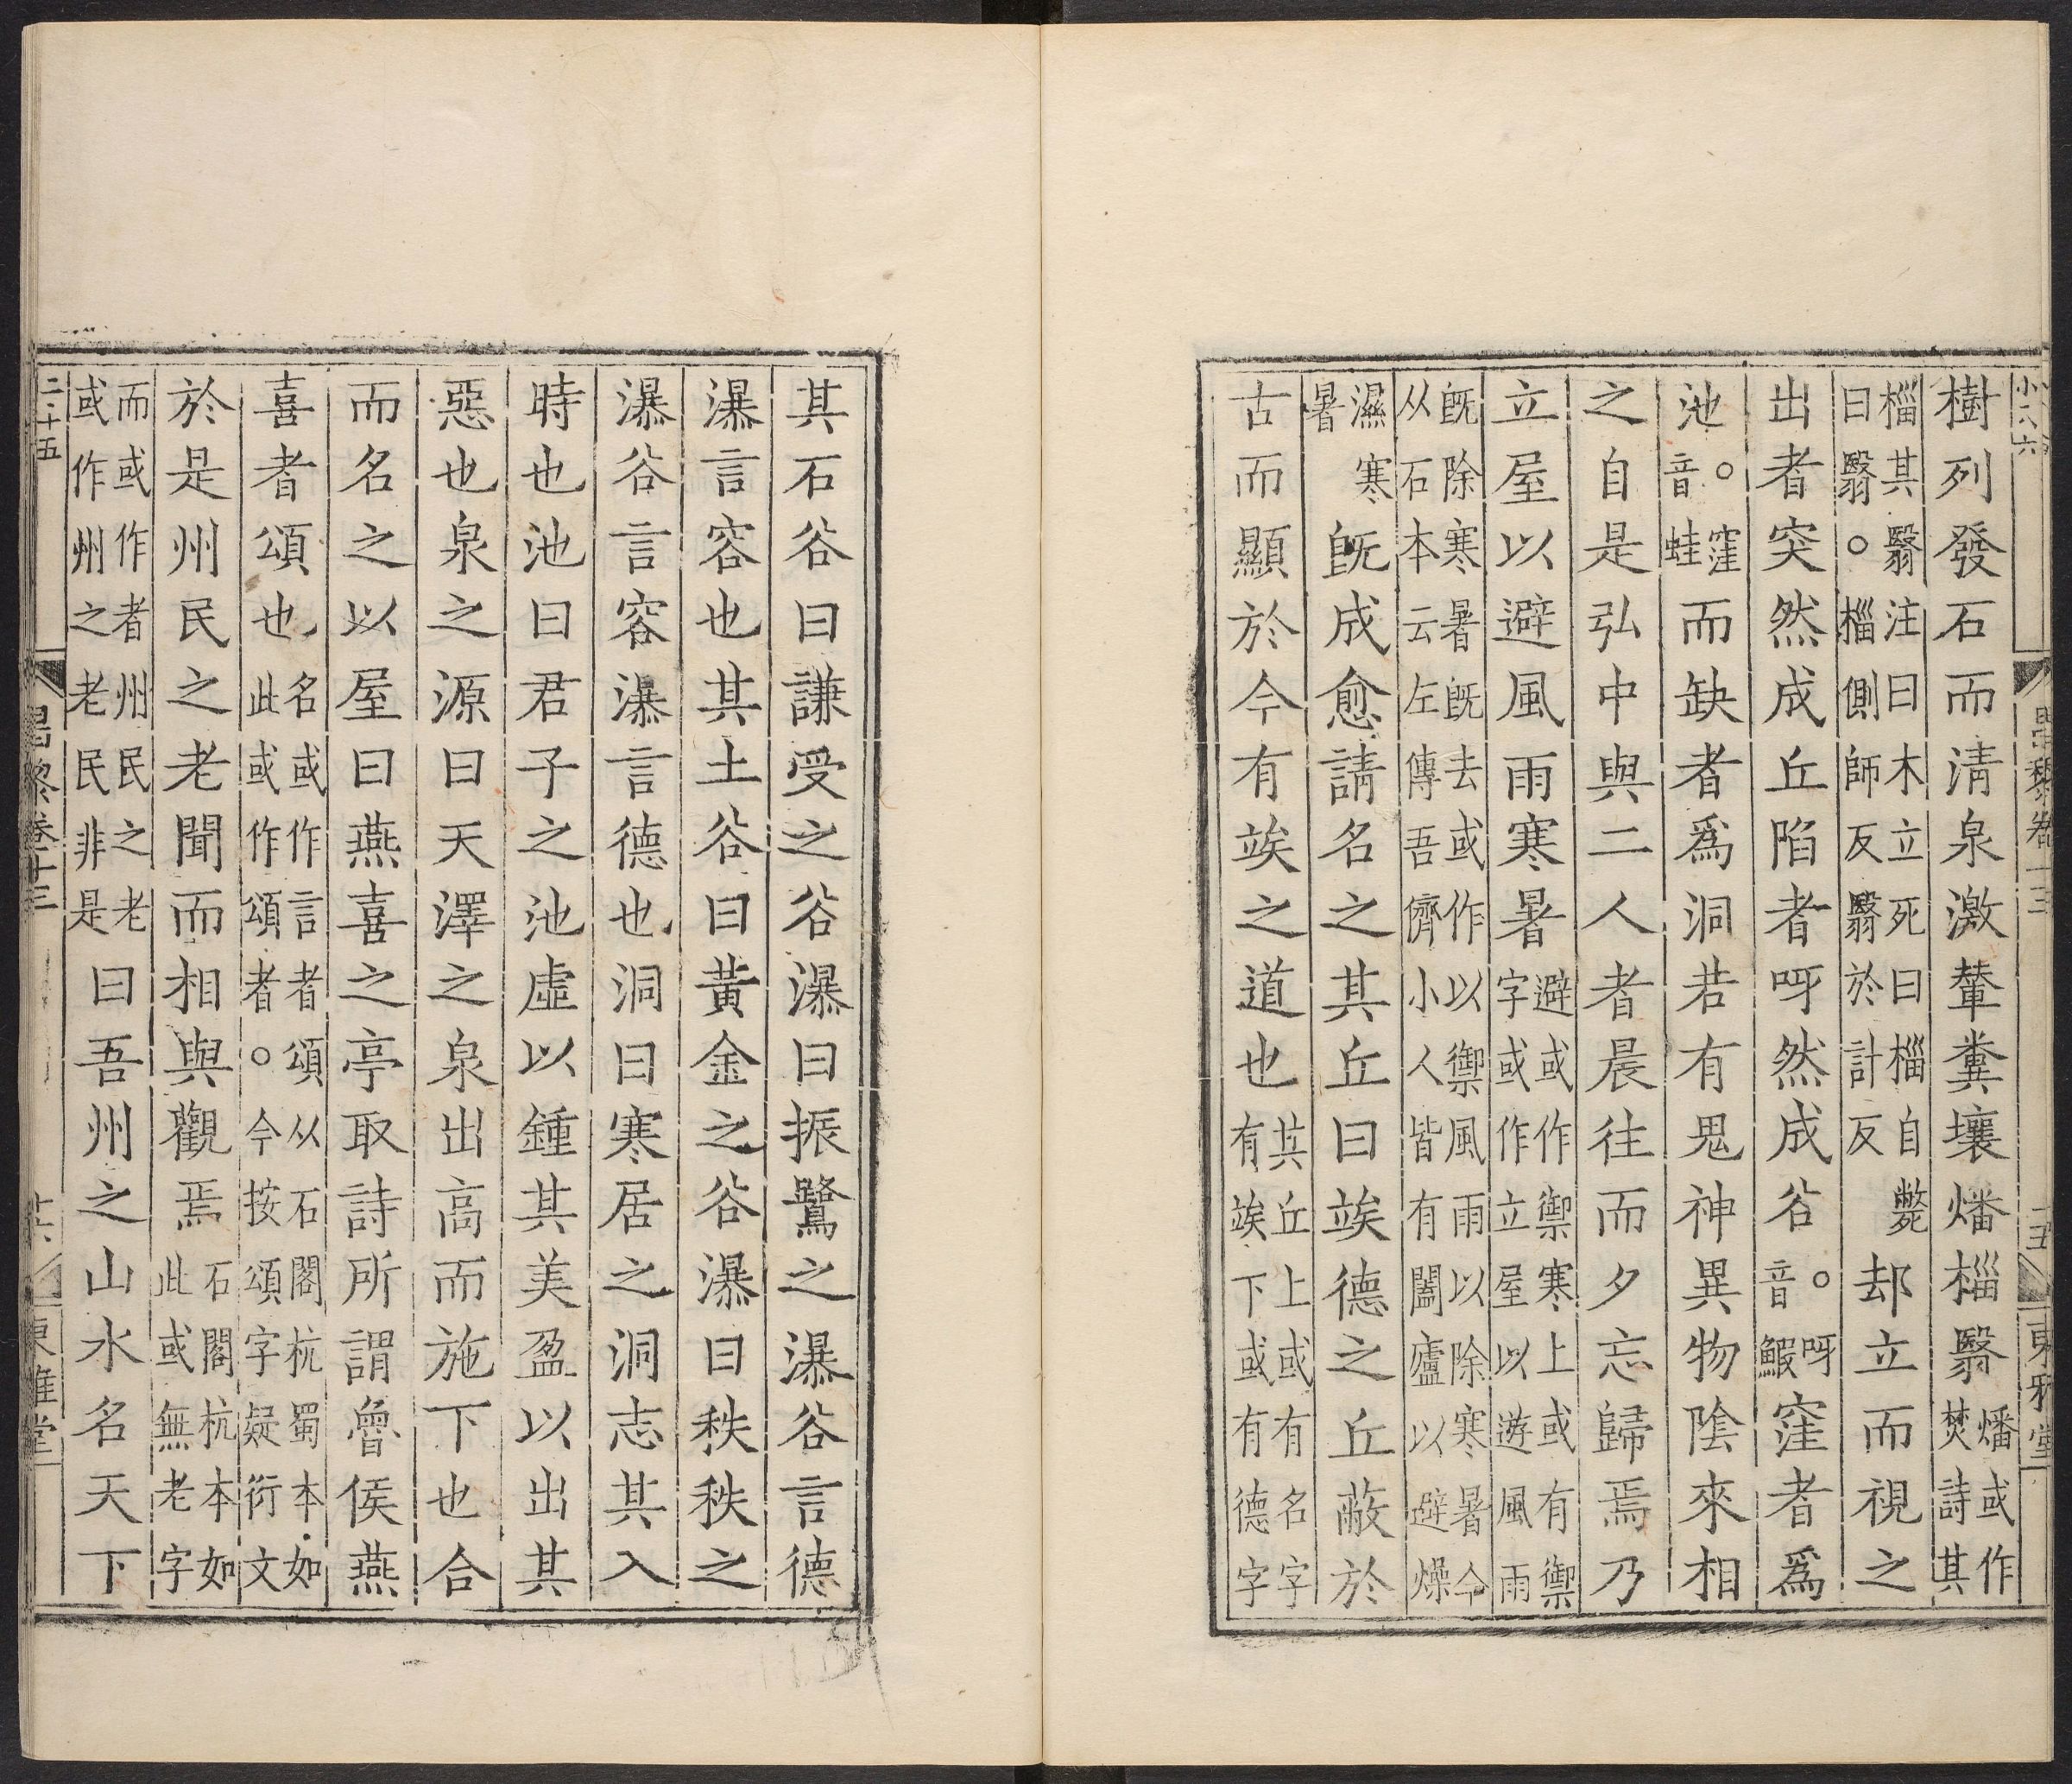 樹列發石而清泉激輦糞壤燔椔翳燔或作焚詩其
椔其翳注曰木立死曰椔自斃曰翳。椔側師反翳於計反却立而視之
出者突然成丘陷者呀然成谷。呀音鰕窪者爲
池。窪音蛙而缺者爲洞若有鬼神異物陰來相
之自是弘中與二人者晨往而夕忘歸焉乃
立屋以避風雨寒暑避或作禦寒上或有禦字或作立屋以遊風雨
旣除寒暑旣去或作以禦風雨以除寒暑今从石本云左傳吾儕小人皆有闔廬以避燥
濕寒暑旣成愈請名之其丘曰竢德之丘蔽於
古而顯於今有竢之道也其丘上或有名字有竢下或有德字
昌黎卷十三
十五
東雅堂
其石谷曰謙受之谷瀑曰振鷺之瀑谷言德
瀑言容也其土谷曰黃金之谷瀑曰秩秩之
瀑谷言容瀑言德也洞曰寒居之洞志其入
時也池曰君子之池虛以鍾其美盈以出其
惡也泉之源曰天澤之泉出高而施下也合
而名之以屋曰燕喜之亭取詩所謂魯侯燕
喜者頌也名或作言者頌从石閣杭蜀本如此或作頌者。今按頌字疑衍文
於是州民之老聞而相與觀焉石閣杭本如此或無老字
而或作者州民之老或作州之老民非是曰吾州之山水名天下
二十五
昌黎卷十三
十六
東雅堂